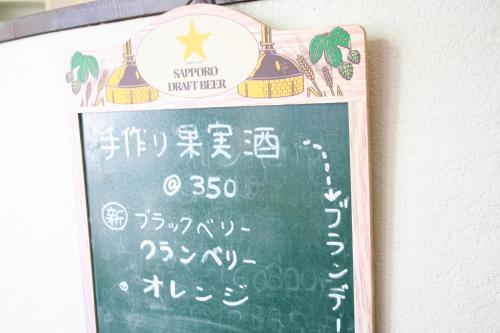 SAPPORO
DRAFT BEER
手作り果実酒
@350
新 ブラックベリー
クランベリー
・オレンジ
ブランデー